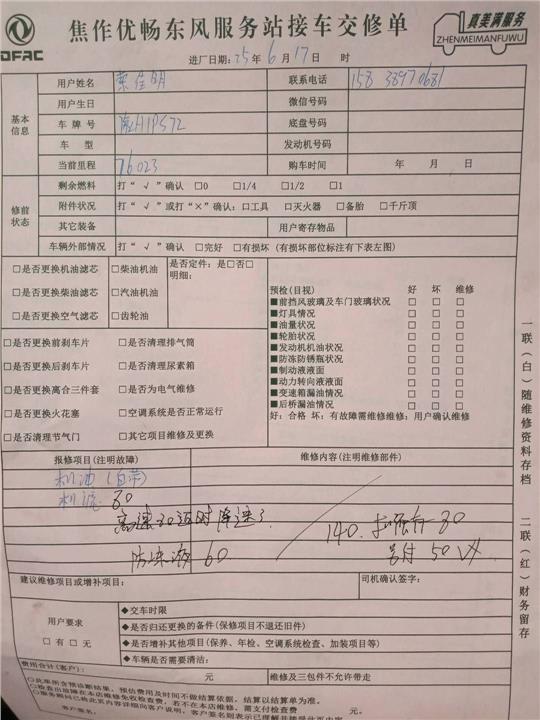 焦作优畅东风服务站接车交修单
DFAC
真美满服务
ZHENMEIMANFUWU
进厂日期: 25年 6月 17日 时
基本信息
用户姓名 联系电话 158 38970681
用户生日 微信号码
车牌号 H1P572 底盘号码
车型 发动机号码
当前里程 76023 购车时间 年 月 日
修前状态
剩余燃料 打“√”确认 □0 □1/4 □1/2 □1
附件状况 打“√”或打“×”确认: □工具 □灭火器 □备胎 □千斤顶
其它装备 用户寄存物品
车辆外部情况 打“√”确认 □完好 □有损坏 (有损坏部位标注有下表左图)
□是否更换机油滤芯 □柴油机油 是否定件: 是□否□
明细:
□是否更换柴油滤芯 □汽油机油
□是否更换空气滤芯 □齿轮油
预检(目视) 好 坏 维修
■前挡风玻璃及车门玻璃状况 □ □ □
■灯具情况 □ □ □
■油量状况 □ □ □
■轮胎状况 □ □ □
■发动机机油状况 □ □ □
■防冻防锈瓶状况 □ □ □
■制动液液面 □ □ □
■动力转向液液面 □ □ □
■变速箱漏油情况 □ □ □
■后桥漏油情况 □ □ □
好: 合格 坏: 有故障需维修维修: 用户确认维修
□是否更换前刹车片 □是否清理排气筒
□是否更换后刹车片 □是否清理尿素箱
□是否更换离合三件套 □是否为电气维修
□是否更换火花塞 □空调系统是否正常运行
□是否清理节气门 □其它项目维修及更换
报修项目(注明故障) 维修内容(注明维修部件)
机油(自带)
机滤 30
高速 时降速
140. 30
防冻液 60
50
建议维修项目或增补项目: 司机确认签字:
用户要求
□有 □无
◆交车时限
◆是否归还更换的备件(保修项目不退旧件)
◆是否增补其他项目(保养、年检、空调系统检查、加装项目等)
◆车辆是否需要清洁:
费用合计(客户): 元 维修及三包件不允许带走
○此单所含预诊断结果, 预估费用及时间不做结算依据, 结算以结算单为准。 元。
○检查出故障在本店维修免收检查费, 若不在本店维修, 需支付检查费
客户签名:
一联(白)随维修资料存档
二联(红)财务留存